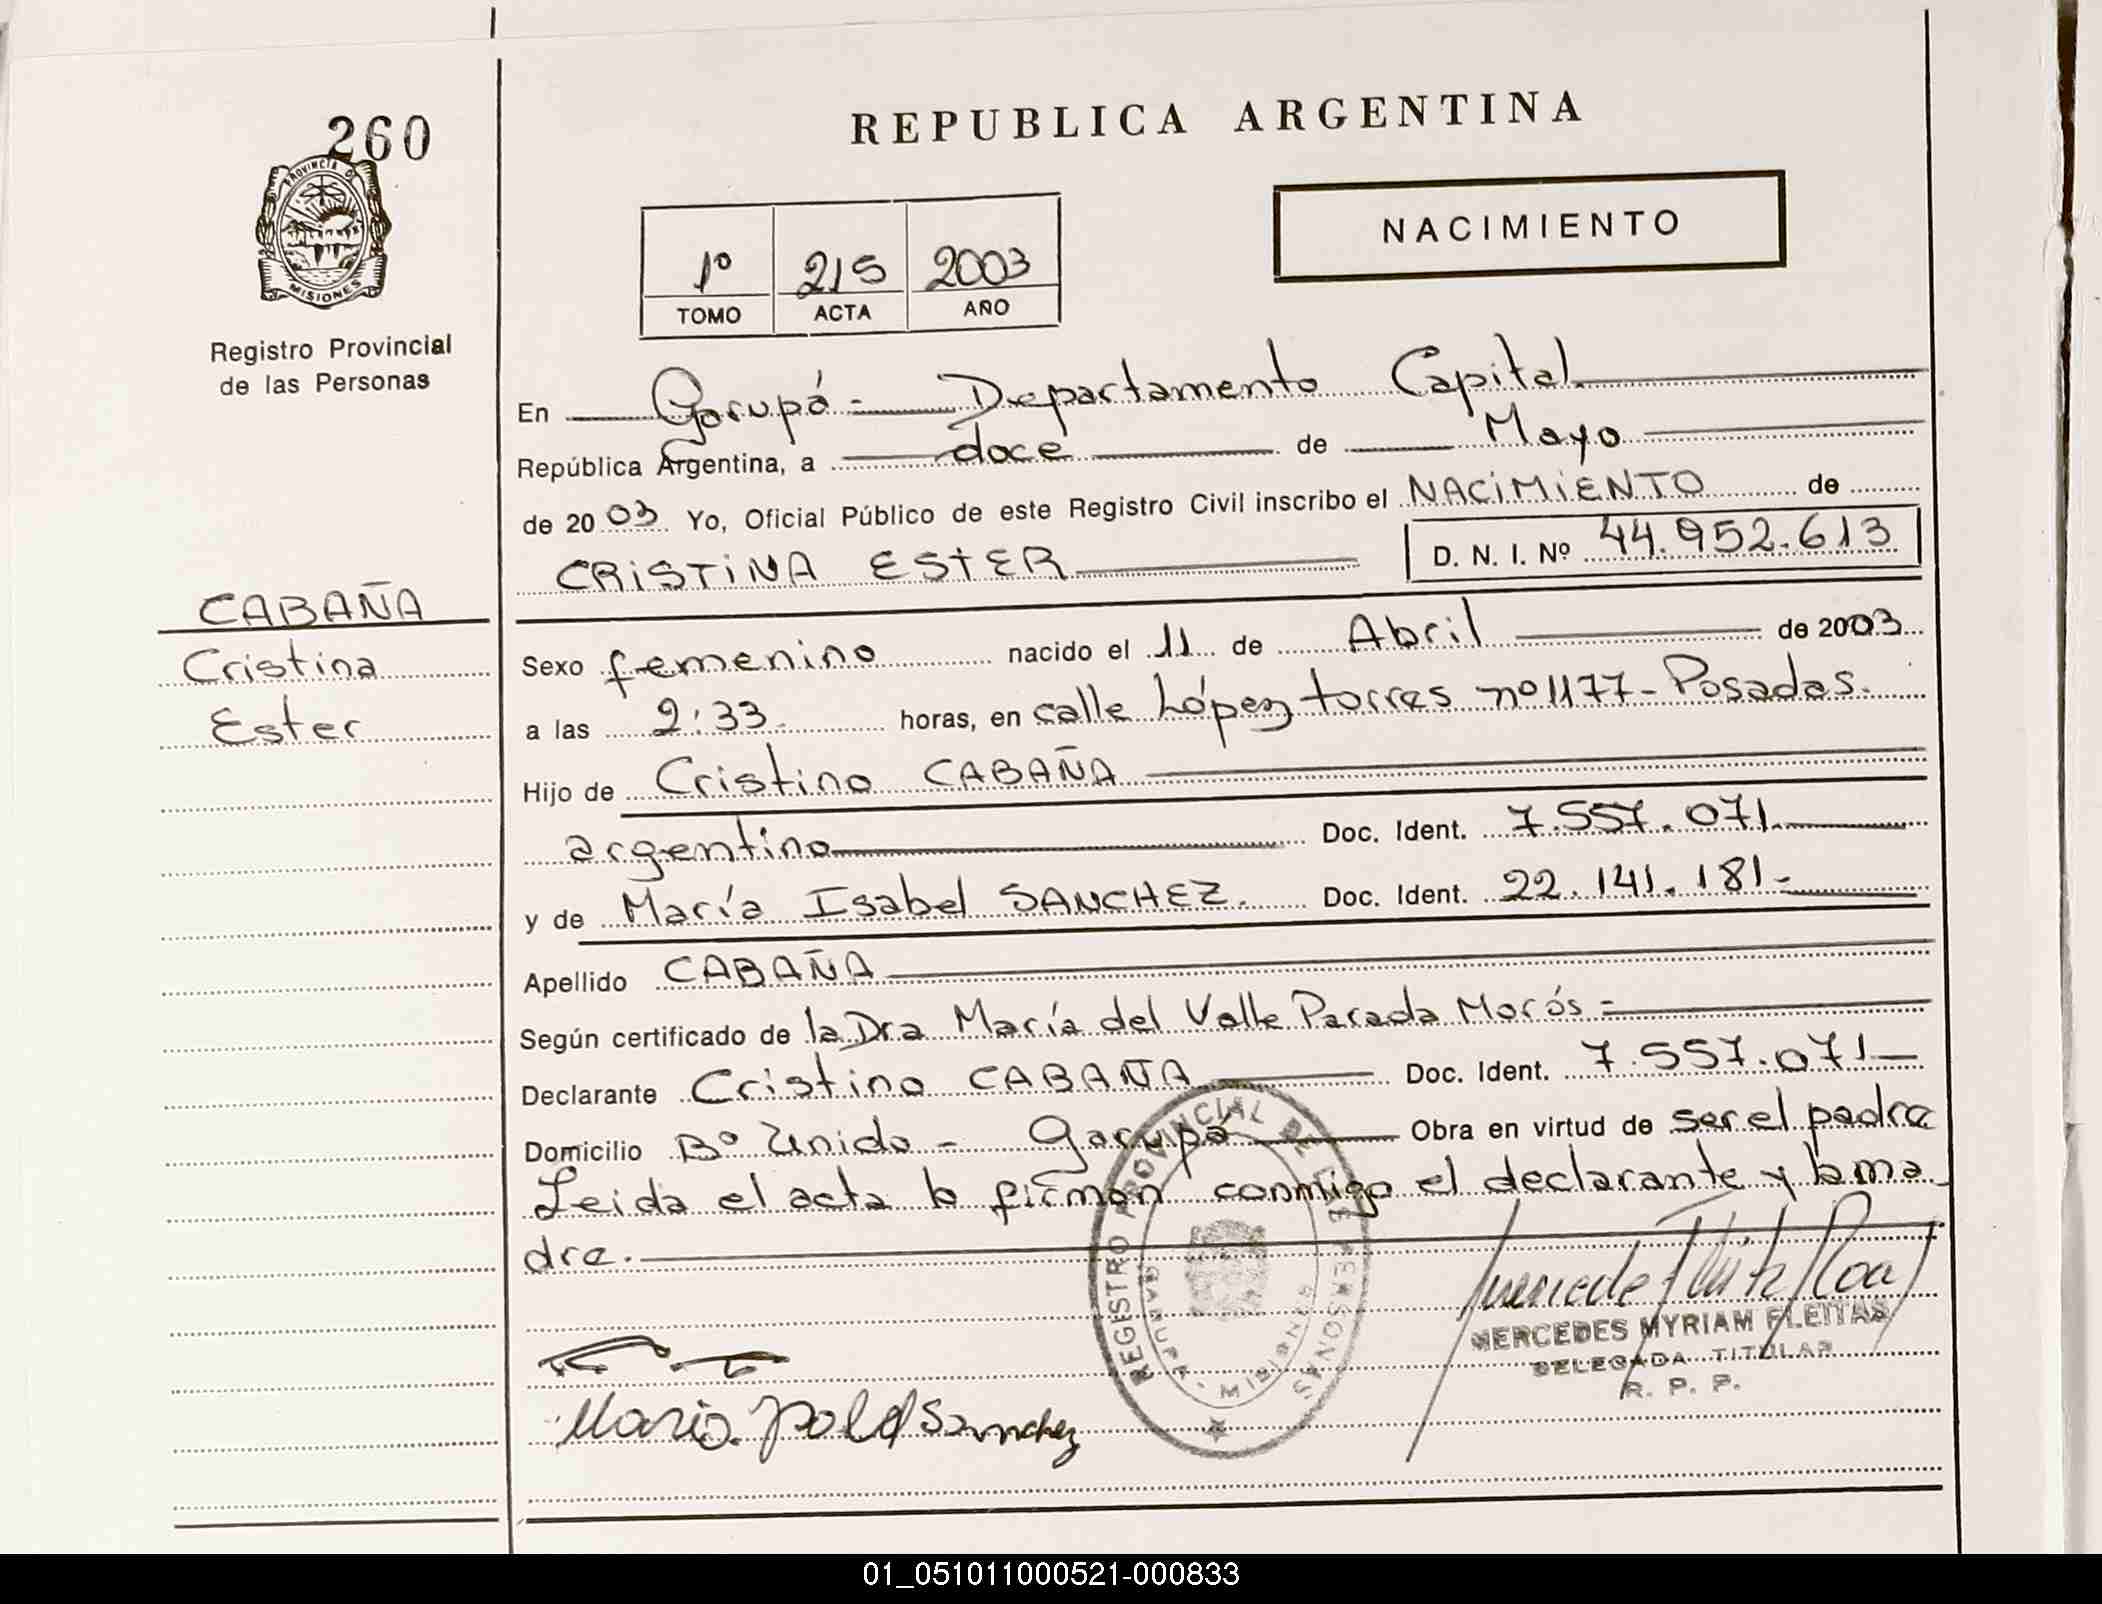 260
PROVINCIA DE
MISIONES
Registro Provincial
de las Personas
CABAÑA
Cristina
Ester
REPUBLICA ARGENTINA
NACIMIENTO
1º 215 2003
TOMO ACTA AÑO
En Garupá - Departamento Capital
República Argentina, a doce de Mayo
de 2003 Yo, Oficial Público de este Registro Civil inscribo el NACIMIENTO de
CRISTINA ESTER D. N. I. Nº 44.952.613
Sexo femenino nacido el 11 de Abril de 2003
a las 2:33 horas, en calle López torres nº 1177 - Posadas.
Hijo de Cristino CABAÑA
argentino Doc. Ident. 7.557.071
y de María Isabel SANCHEZ. Doc. Ident. 22.141.181-
Apellido CABAÑA
Según certificado de la Dra María del Valle Parada Morós =
Declarante Cristino CABAÑA Doc. Ident. 7.557.071
Domicilio Bº Unido - Garupá Obra en virtud de ser el padre
Leida el acta la firman conmigo el declarante y la ma
dre.
REGISTRO PROVINCIAL DE LAS PERSONAS
GARUPA - Misiones
MERCEDES MYRIAM FLEITAS
DELEGADA TITULAR
R. P. P.
Maria Sanchez
01_051011000521-000833